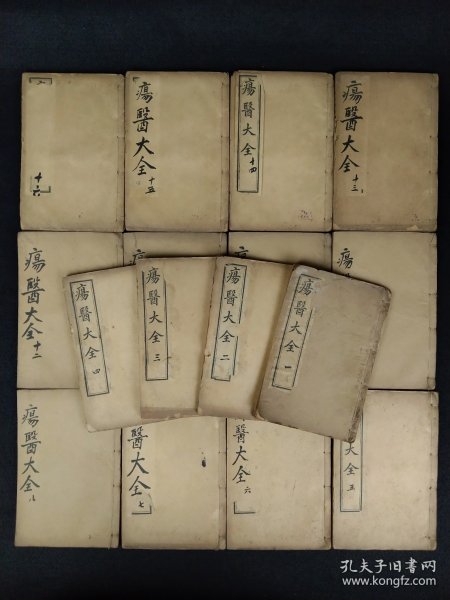 十六
瘍醫大全 十五
瘍醫大全 十四
瘍醫大全 十三
瘍醫大全 十二
瘍
瘍醫大全 四
瘍醫大全 三
瘍醫大全 二
瘍醫大全 一
瘍醫大全 八
醫大全 七
醫大全 六
大全 五
孔夫子旧书网
www.kongfz.com